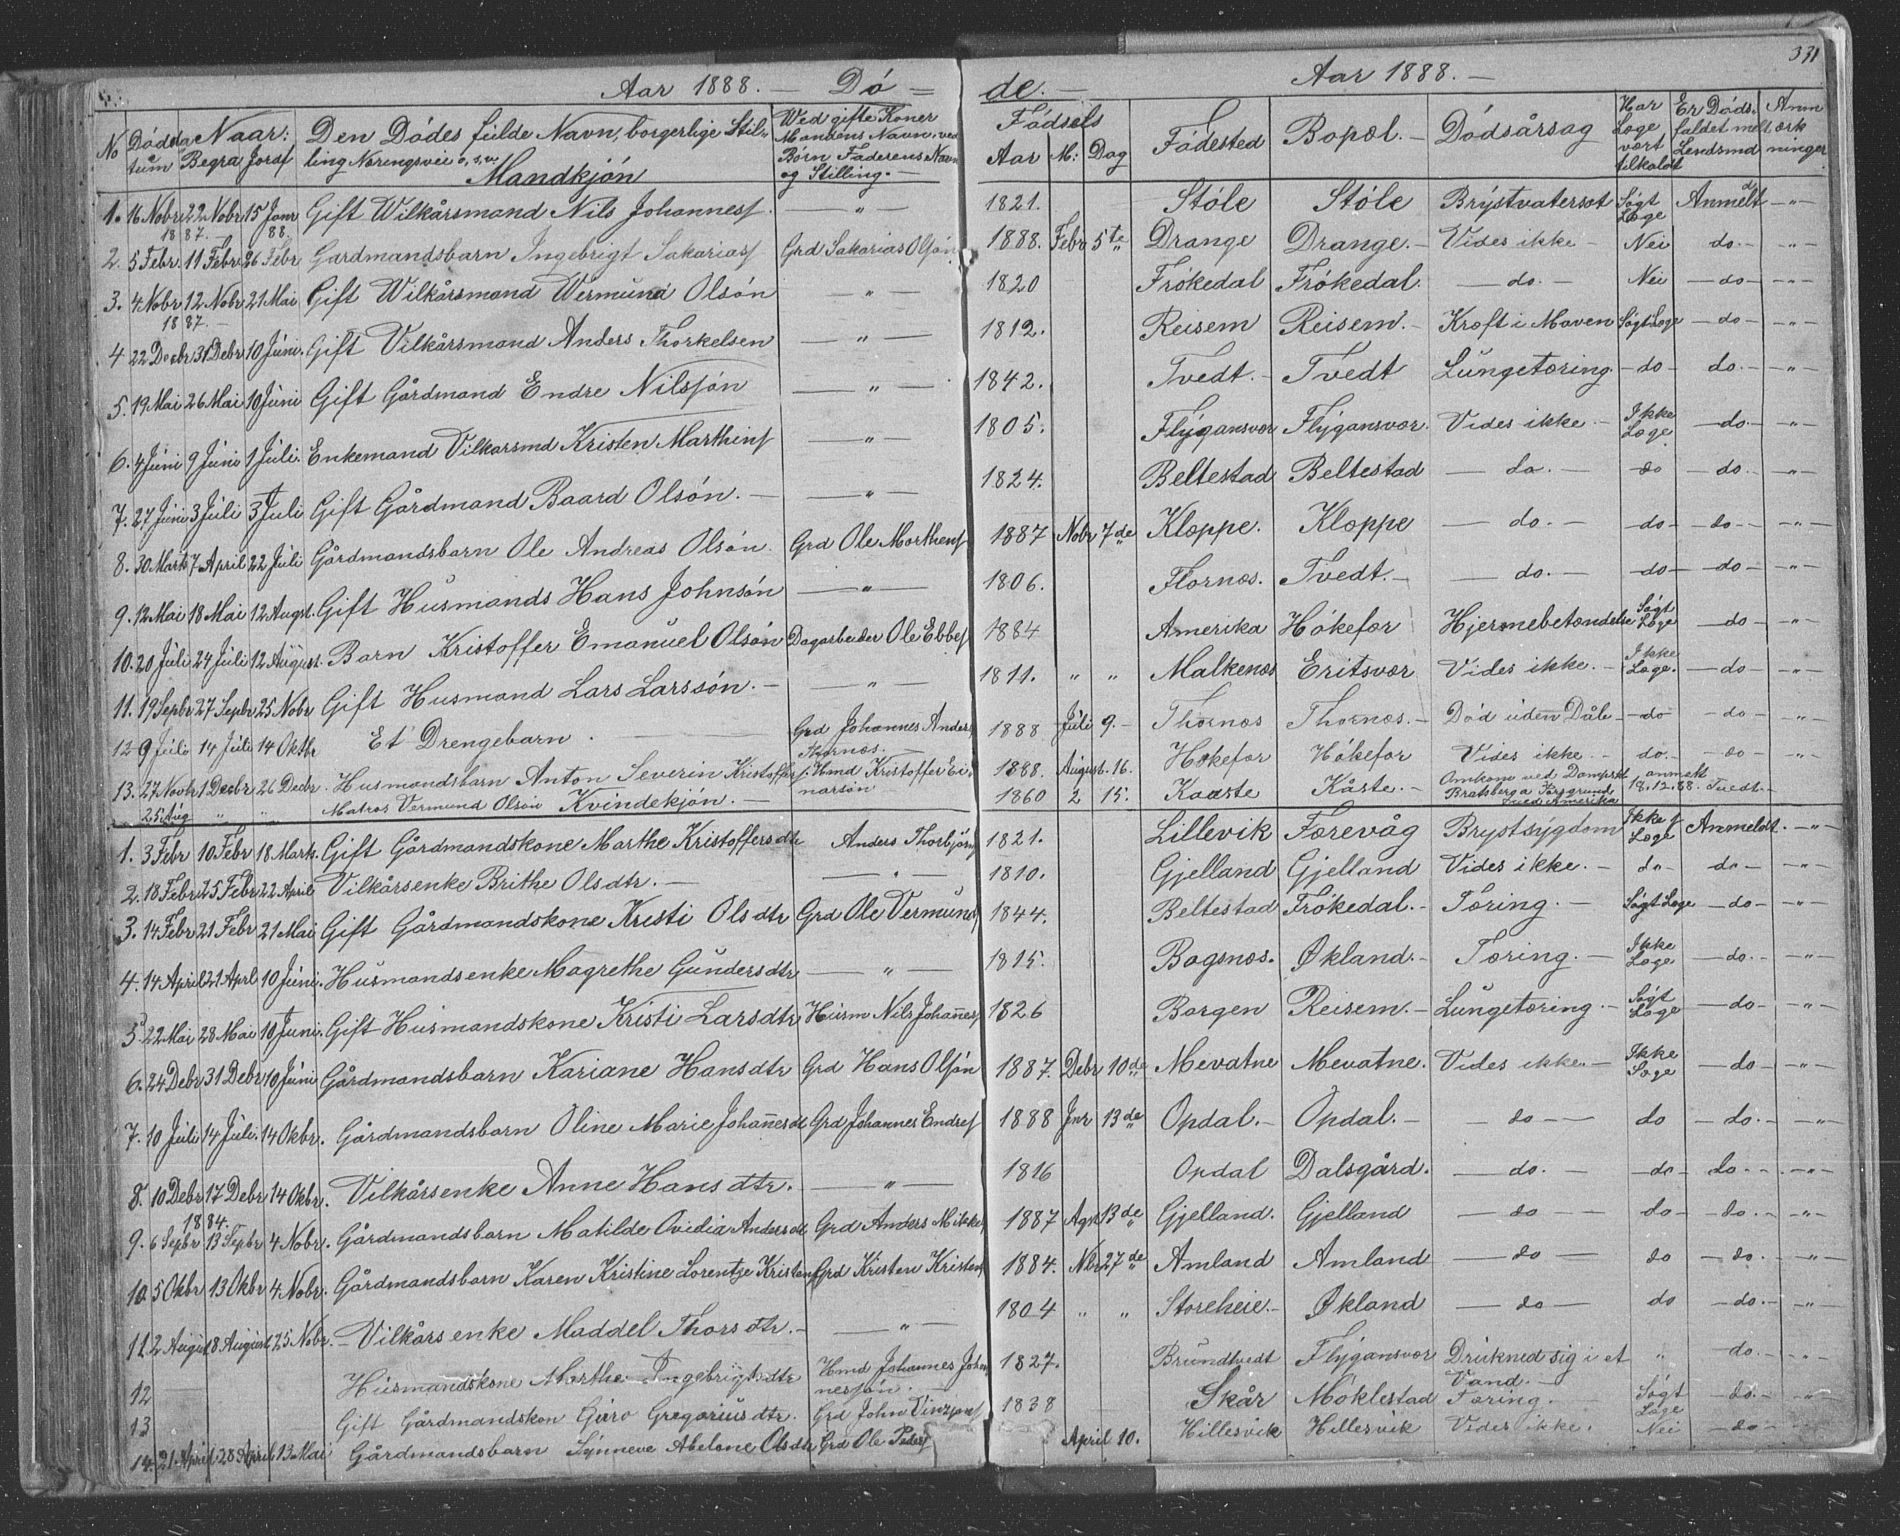 331
Aar 1888. — Dó = de. — Aar 1888. —
No Dödsdatum Naar: Begra Jordf Den Dödes fulde Navn, borgerlige Stilling Næringsvei o, s, v. Mandkjón Ved gifte Koner Mandens Navn, ved Børn Faderens Navn og Stilling. — Fødsels Aar M: Dag Fødested Bopæl. — Dödsårsag Har Læge vært tilkaldt Er Döds-faldet melt Lendsmd Anmærkninger
1. 16 Nobr 1887. 22 Nobr 15 Janr 88. Gift Wilkårsmand Nils Johannesf. — " — 1821. Stóle Stóle Brýstvatersot Sógt Læge Anmeldt — " —
2. 5 Febr. 11 Febr 26 Febr Gardmandsbarn Ingebrigt Sakariasf Grd Sakarias Olsón 1888. Febr 5te Drange Drange. — Vides ikke — Nei do. — — " —
3. 4 Nobr 1887. — 12 Nobr 21 Mai Gift Wilkårsmand Wermund Olsón — " — 1820 Frókedal Frókedal. — do. — Nei — do — — " —
4 22 Decbr 31 Debr 10 Júni. Gift Vilkårsmand Anders Thorkelsen — " — 1812. Reisem Reisem. — Kræft i Maven Sógt Læge — do — — " —
5. 19 Mai 26 Mai 10 Júni Gift Gårdmand Endre Nilsjón — " — 1842. Tvedt. — Tvedt Lúngetæring. — do do. — — " —
6. 4 Júni 9 Júni 1 Júli. Enkemand Vilkarsmd Kristen Marthinsf — " — 1805. Flýgansvær Flýgansvær. Vides ikke — Ikke Læge. — do — — " —
7. 27 Júni 3 Júli 3 Júli Gift Gårdmand Baard Olsón. — — " — 1824. Beltestad Beltestad — do. — do — do. — — " —
8. 30 Marts 7 April 22 Júli Gårdmandsbarn Ole Andreas Olsón. Grd Ole Morthensf 1887 Nobr 7de Kloppe. Kloppe — do. — — do — — do — — " —
9. 12 Mai 18 Mai 12 Augst. Gift Húsmands Hans Johnsón — " — 1806. Flornes. Tvedt. — — do. — — do — — do — — " —
10. 20 Júli 24 Júli 12 August. Barn Kristoffer Emanuel Olsón Dagarbeider Ole Ebbesf 1884 Amerika Hókefær Hjernebetændelse Sógt Læge — do — — " —
11. 19 Sepbr 27 Sepbr 25 Nobr Gift Húsmand Lars Larssón. — — " — 1811. " " Malkenes Eritsvær Vides ikke. — Ikke Læge. — do — " —
12 9 Júli 14 Júli 14 Oktbr Et Drengebarn. — Grd Johannes Andersf Thornæs. — 1888 Júli 9. — Thornæs Thornæs. — Död úden Dåb — do — do — — " —
13. 27 Novbr 1 Decbr 26 Decbr. Húsmandsbarn Anton Severin Kristoffersf. Hmd Kristoffer Einarsón 1888. August. 16. Hokefær Hókefær Vides ikke. — do. — do — " —
25 Aug " " Matros Vermund Olson 1860 2 15. Kaarte Kårte. — Omkom ved Dampskt Bratsberg a Porsgrund ved Amerika anmeldt 18.12.88. Tvedt. —
Kvindekjón. —
1. 3 Febr 10 Febr 18 Marts. Gift Gårdmandskone Marthe Kristoffersdtr Anders Thorbjörnsf 1821. Lillevik Færevåg Brystsýgdom Ikke Læge Anmeldt. — " —
2. 18 Febr 25 Febr 22 April Vilkårsenke Brithe Olsdtr. — — " — 1810. Gjelland Gjelland Vides ikke. — do — do — — " —
3. 14 Febr 21 Febr 21 Mai Gift Gårdmandskone Kristi Olsdtr Grd Ole Vermúndsf 1844. Beltestad Frókedal. — Tæring. — Sógt Læge — do — — " —
4. 14 April 21 Aprl 10 Júni. Húsmandsenke Magrethe Gúndersdtr — " — 1815. Bagsnes. Økland. — Tæring. — Ikke Læge — do. — — " —
5 22 Mai 28 Mai 10 Júni. Gift Húsmandskone Kristi Larsdtr Húsm Nils Johañesf 1826 Borgen Reisem. — Lúngetæring. — Sógt Læge — do — — " —
6. 24 Debr 31 Debr 10 Júni Gårdmandsbarn Kariane Hansdtr Grd Hans Olsjón 1887. Debr 10de Mevatne Mevatne. Vides ikke. — Ikke Læge — do — — " —
7. 10 Júli 14 Júli. 14 Okbr. Gårdmandsbarn Oline Marie Johañesdt Grd Johannes Endresf 1888 Jnr 13de Opdal. — Opdal. — — do — do — do. — — " —
8. 10 Debr 17 Debr 14 Okbr. Vilkårsenke Anne Hansdtr. — " — 1816 Opdal Dalsgård. — do. — — do — do. — — " —
9. 6 Sepbr 1884. 13 Sepbr 4 Nobr. Gårdmandsbarn Matilde Ovidia Andersdt Grd Anders Mikkelsf 1887 Agst 13de Gjelland. Gjelland — do — do — — do. — — " —
10. 5 Okbr 13 Okbr 4 Nobr. Gårdmandsbarn Karen Kristine Lorentze Kristensdt Grd Kristen Kristensf 1884. Nbr 27de Amland Amland — do — do — do. — — " —
11. 12 August 18 August 25 Nobr. — Vilkårsenke Maddel Thorsdtr. — — " — 1804 " " Storeheie — Økland — do — do — do. — — " —
12 Húsmandskone Marthe Ingebrigtsdtr Hmd Johannes Johannesjón. — 1827. Brúndtvedt Flýgansvær Drúkned sig i et Vand. — " do. — — " —
13 Gift Gårdmandskon Gúro Gregoriusdtr. Grd John 1838 Skår Móklestad Tæring. Sógt Læge — do. — — " —
14. 21 April 28 April 13 Mai Gårdmandsbarn Sýnneve Abelone Olsdtr Grd Ole Pedersf April 10. Hillesvik Hillesvik Vides ikke. Nei — do —